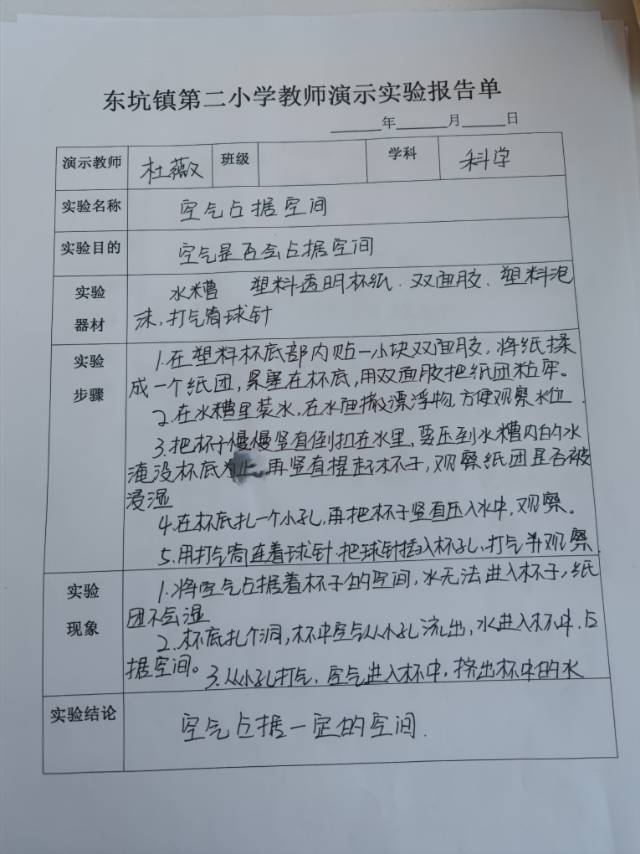 东坑镇第二小学教师演示实验报告单
年 月 日
演示教师 杜薇 班级 学科 科学
实验名称 空气占据空间
实验目的 空气是否会占据空间
实验 水糟 塑料透明杯纸、双面胶、塑料泡
器材 沫,打气筒球针
实验 1.在塑料杯底部内贴一小块双面胶,将纸揉
步骤 成一个纸团,紧塞在杯底,用双面胶把纸团粘牢。
2.在水糟里装水,在水面撒漂浮物,方便观察水位.
3.把杯子慢慢竖直倒扣在水里,要压到水糟内的水
淹没杯底为止,再竖直提起杯子,观察纸团是否被
浸湿
4.在杯底扎一个小孔,再把杯子竖直压入水中,观察。
5.用打气筒连着球针,把球针插入杯孔,打气并观察
实验 1.将空气占据着杯子的空间,水无法进入杯子,纸
现象 团不会湿
2.杯底扎个洞,杯中空气从小孔流出,水进入杯中,占
据空间。 3.从小孔打气,空气进入杯中,挤出杯中的水
实验结论 空气占据一定的空间.